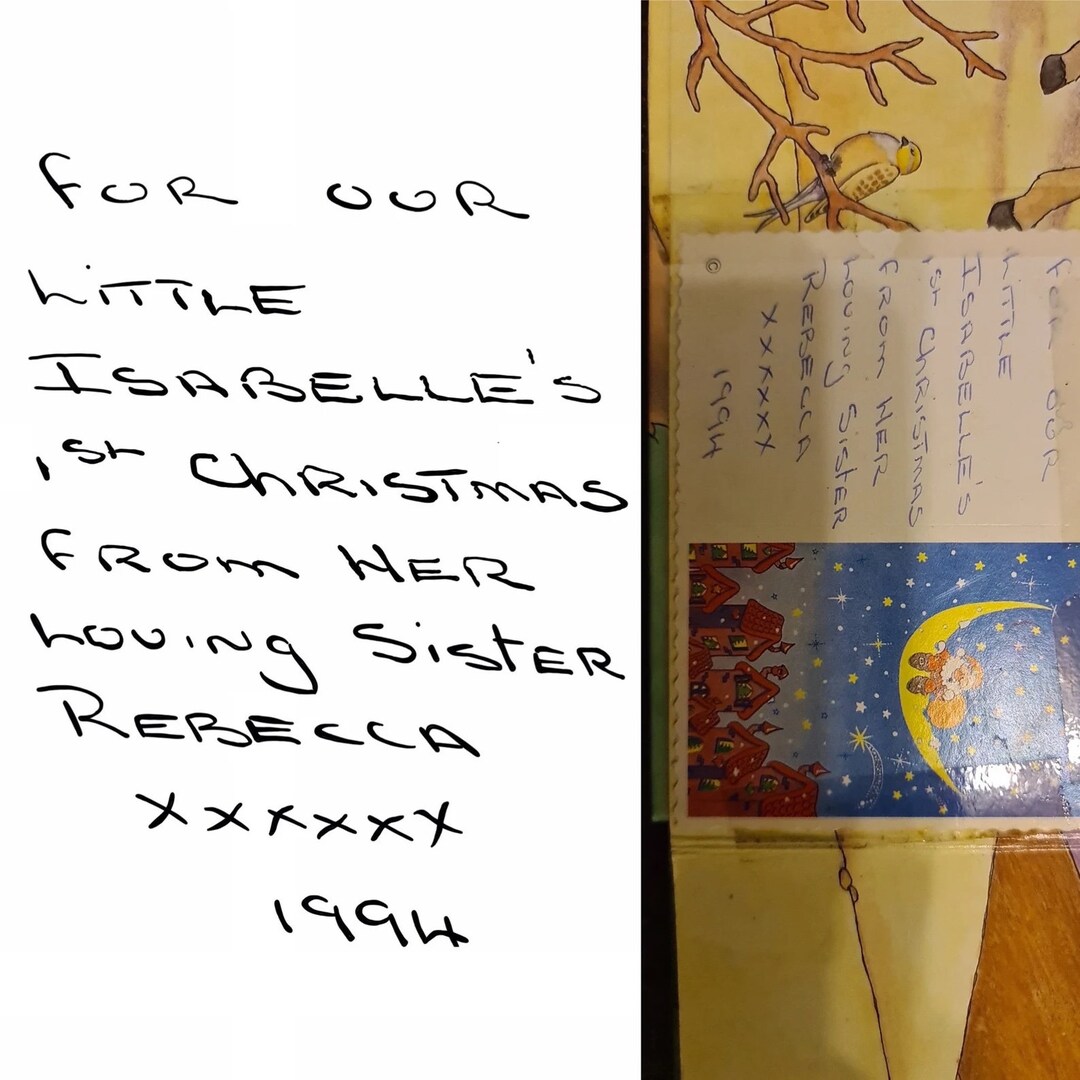 FOR OUR
LiTTLE
ISABELLE'S
1St ChRISTMAS
FROM HER
LOVING SistER
REBECCA
xxxxxx
1994
©
FOR OUR
LiTTLE
ISABELLE'S
1St ChRISTMAS
FROM HER
LOVING SistER
REBECCA
xxxxxx
1994